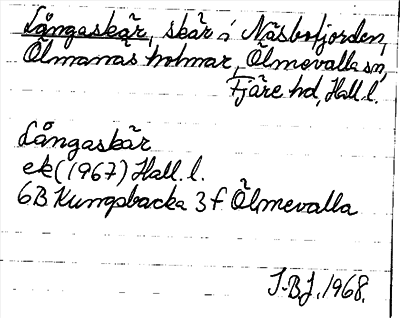 Långaskär, skär i Näsbofjorden,
Ölmanäs holmar, Ölmevalla sn,
Fjäre hd, Hall. l.
Långaskär
ek (1967) Hall. l.
6B Kungsbacka 3f Ölmevalla
I-BJ. 1968.